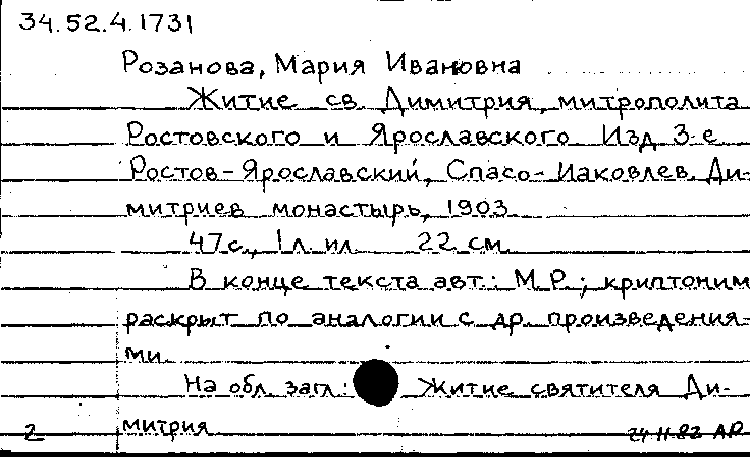 34.52.4.1731
Розанова, Мария Ивановна
Житие св. Димитрия, митрополита
Ростовского и Ярославского Изд. 3-е
Ростов-Ярославский, Спасо-Иаковлев. Ди-
митриев монастырь, 1903.
47 с., 1 л. ил. 22 см.
В конце текста авт.: М.Р.; криптоним
раскрыт по аналогии с др. произведения-
ми.
На обл. загл.: Житие святителя Ди-
митрия
2 24.11.82 АР